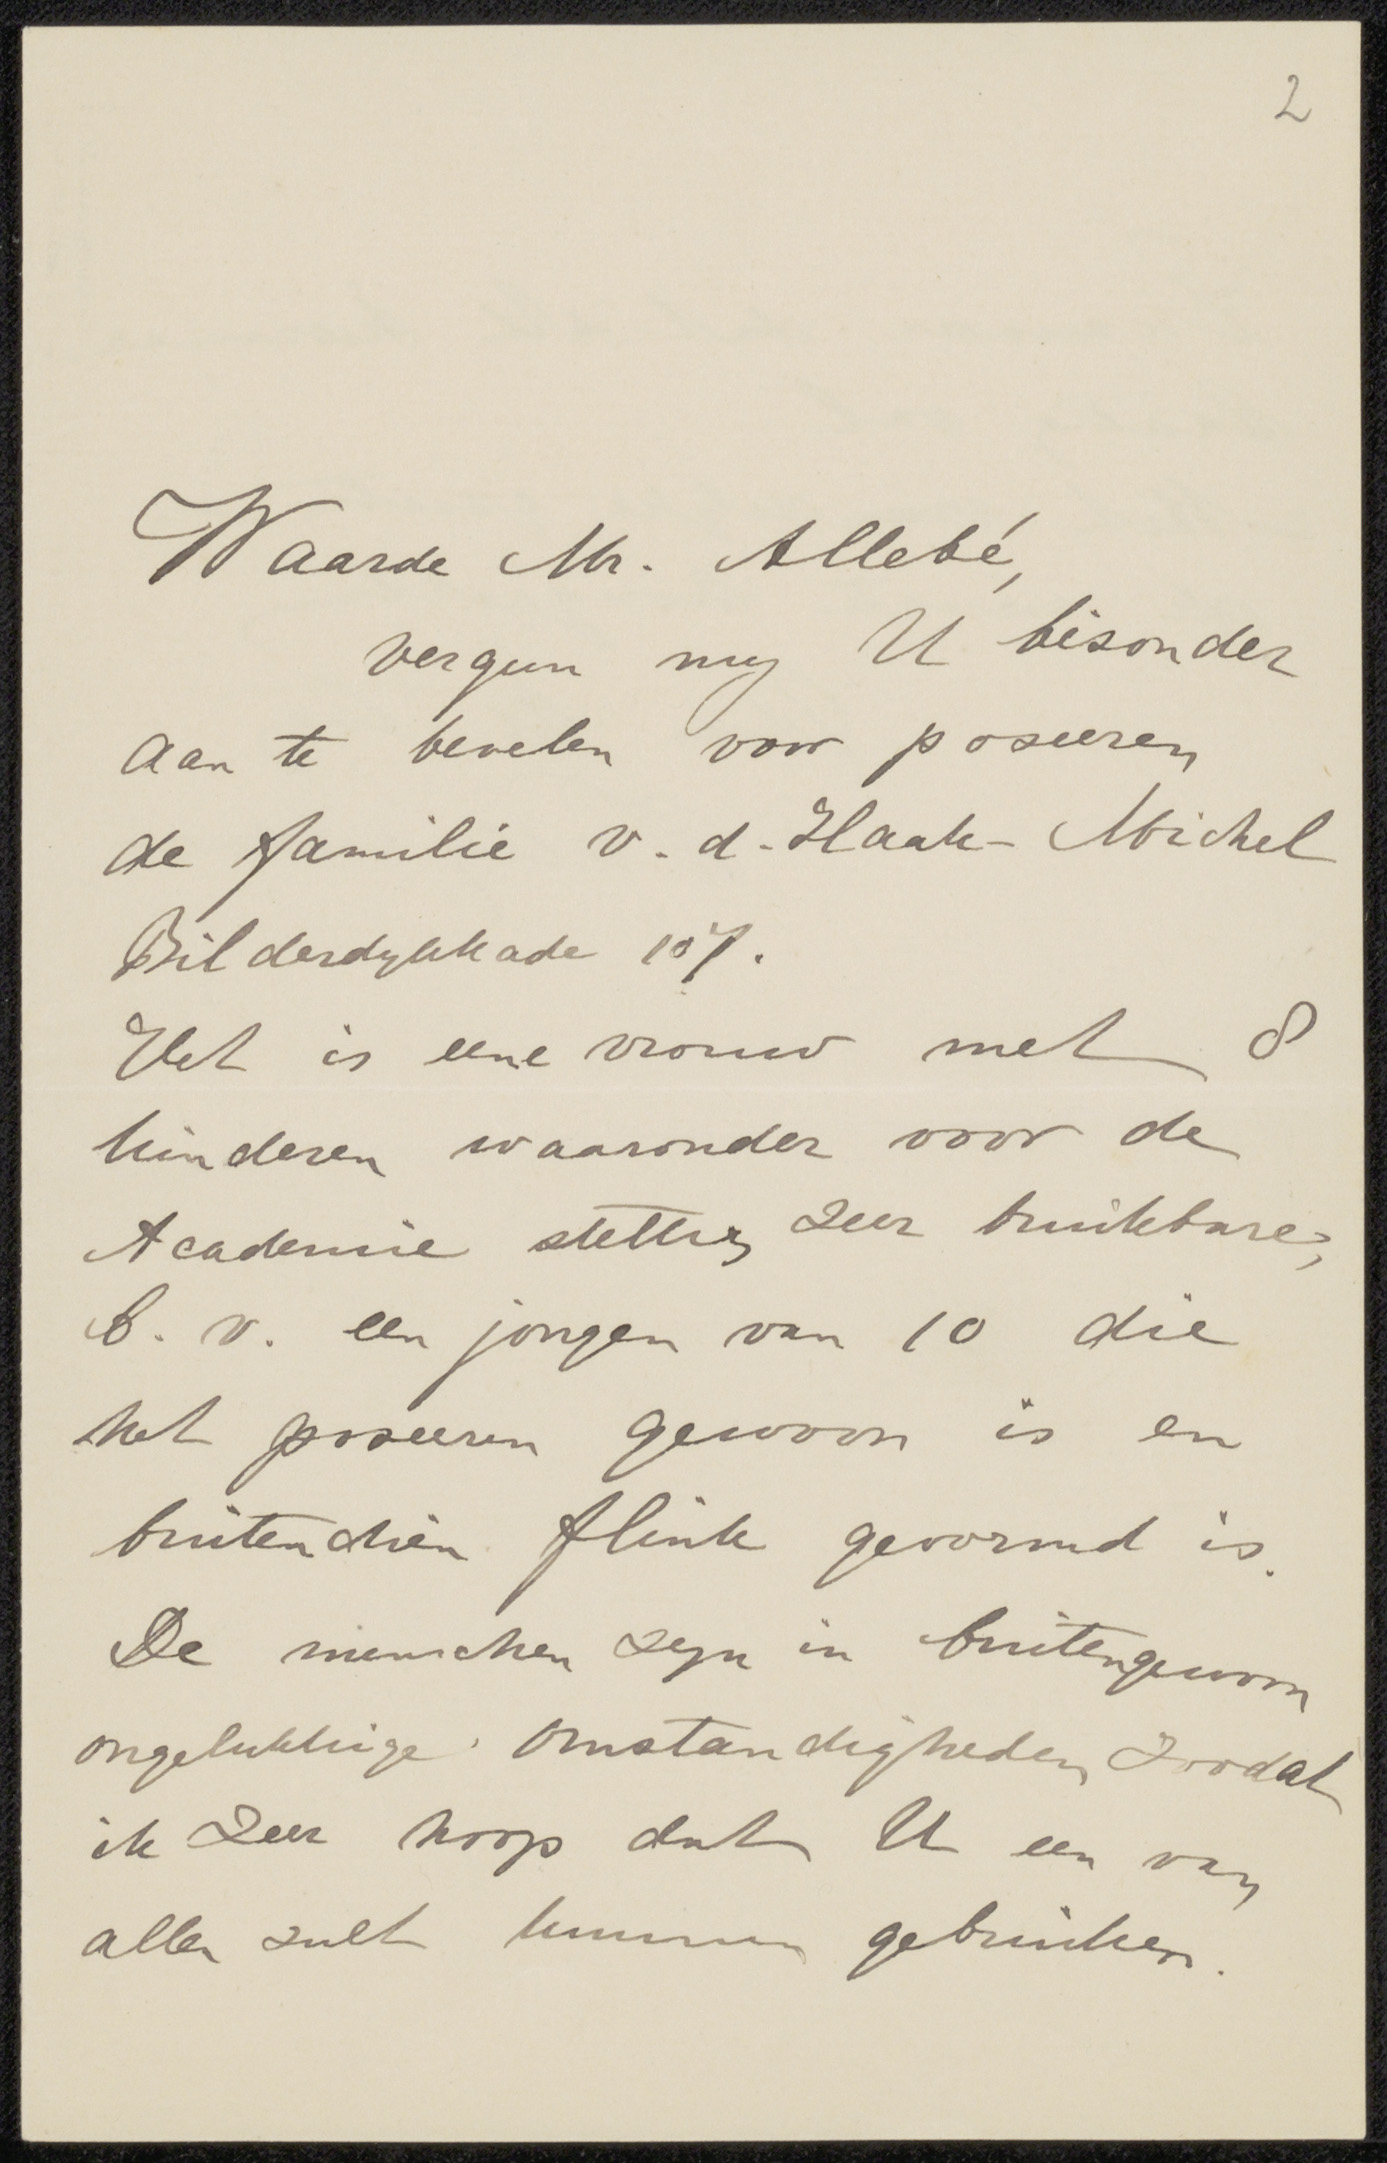 2
Waarde Mr. Allebé,
vergun my U bisonder
aan te bevelen voor poseeren
de familie v. d. Haak- Michel
Bilderdykkade 107.
Het is eene vrouw met 8
kinderen waaronder voor de
Academie stellig zeer bruikbare,
b. v. een jongen van 10 die
het poseeren gewoon is en
buitendien flink gevormd is.
De menschen zyn in buitengewoon
ongelukkige omstandigheden zoodat
ik zeer hoop dat U een van
allen zult kunnen gebruiken.